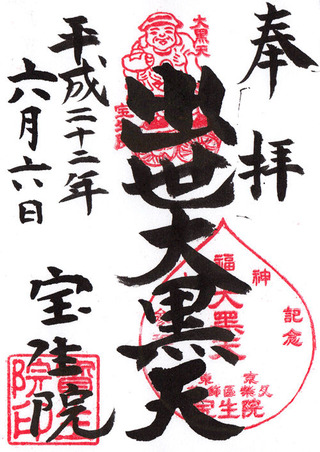 奉拝
大黒天
出世大黒天
福神
記念
大黒天
宝生院
平成二十二年
六月六日
宝生院
寶生院印